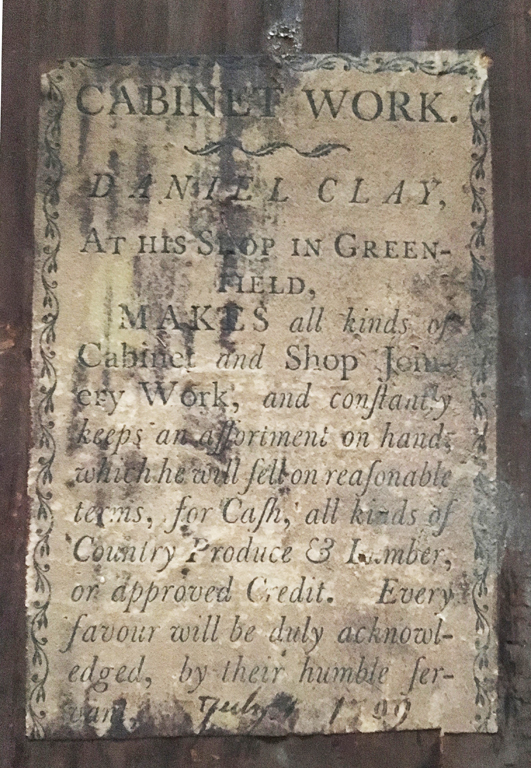 CABINET WORK.
DANIEL CLAY,
AT HIS SHOP IN GREEN-
FIELD,
MAKES all kinds of
Cabinet and Shop Join-
ery Work, and conſtantly
keeps an aſſortment on hand;
which he will ſell on reaſonable
terms, for Caſh, all kinds of
Country Produce & Lumber,
or approved Credit. Every
favour will be duly acknowl-
edged, by their humble ſer-
vant,